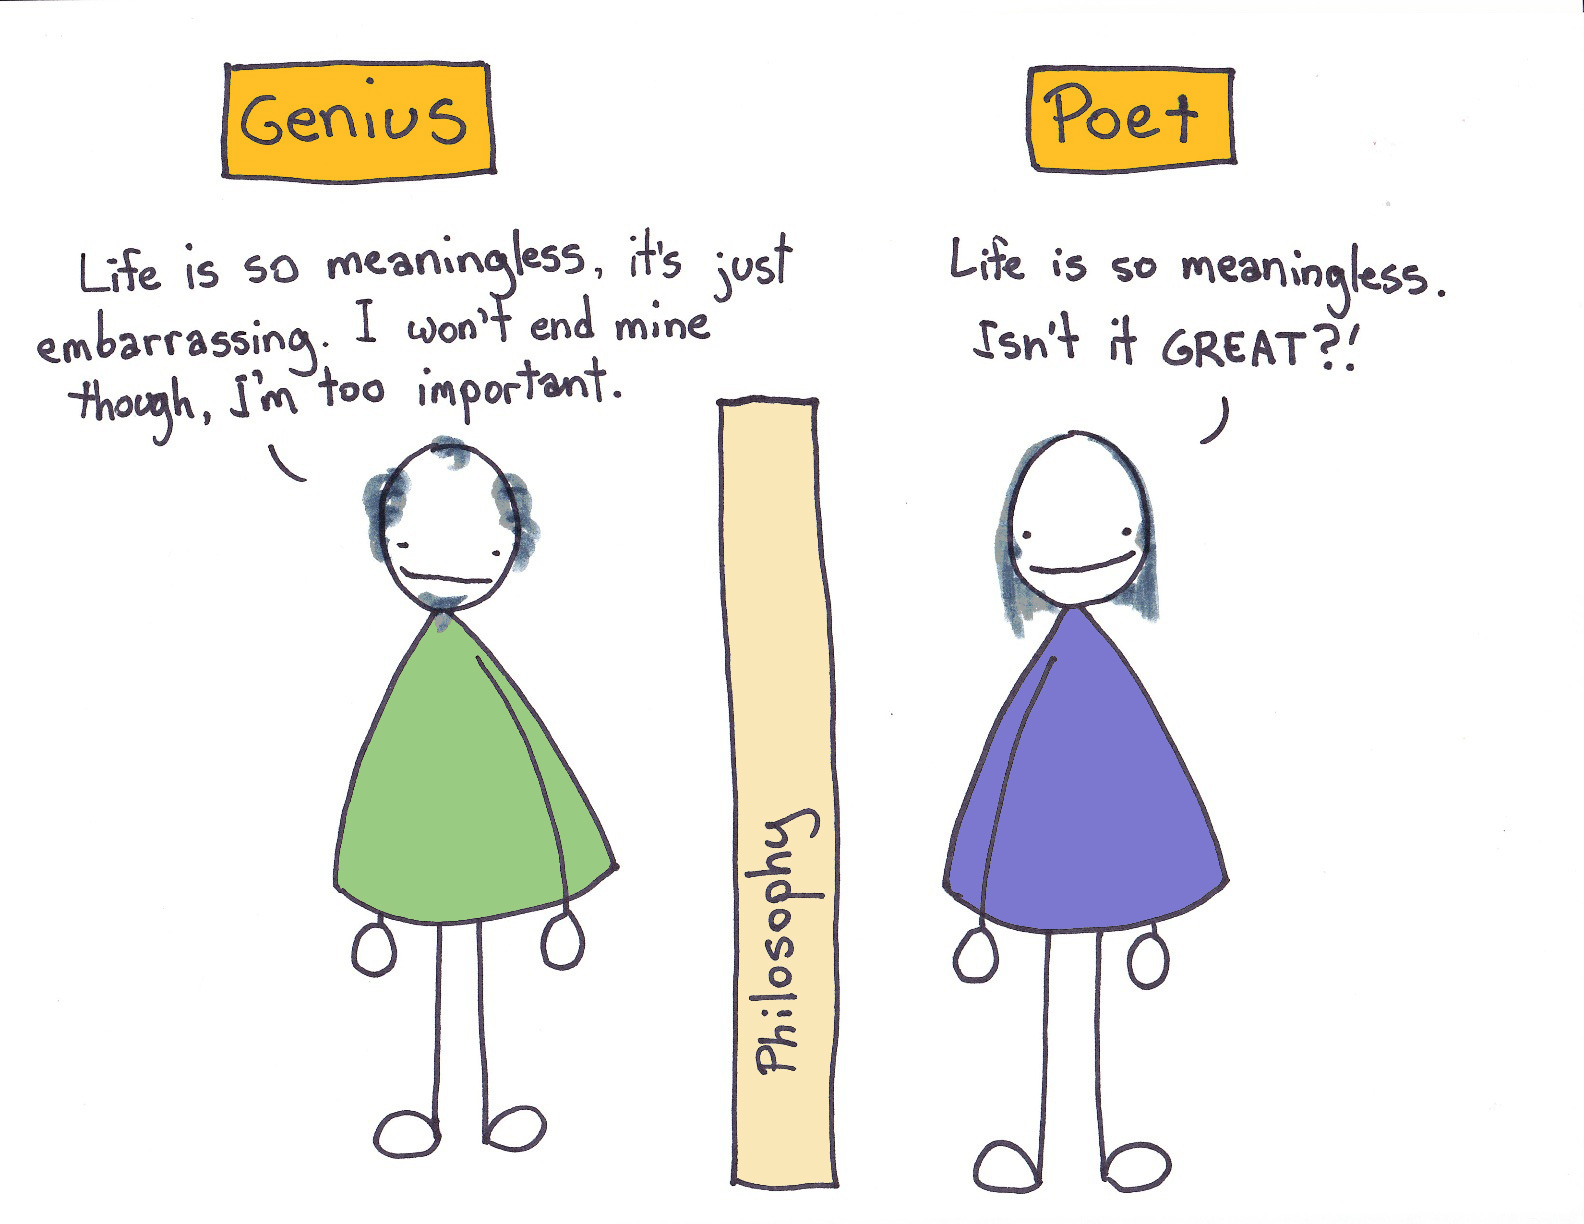 Genius
Life is so meaningless, it's just
embarrassing. I won't end mine
though, I'm too important.
Poet
Life is so meaningless.
Isn't it GREAT?!
Philosophy